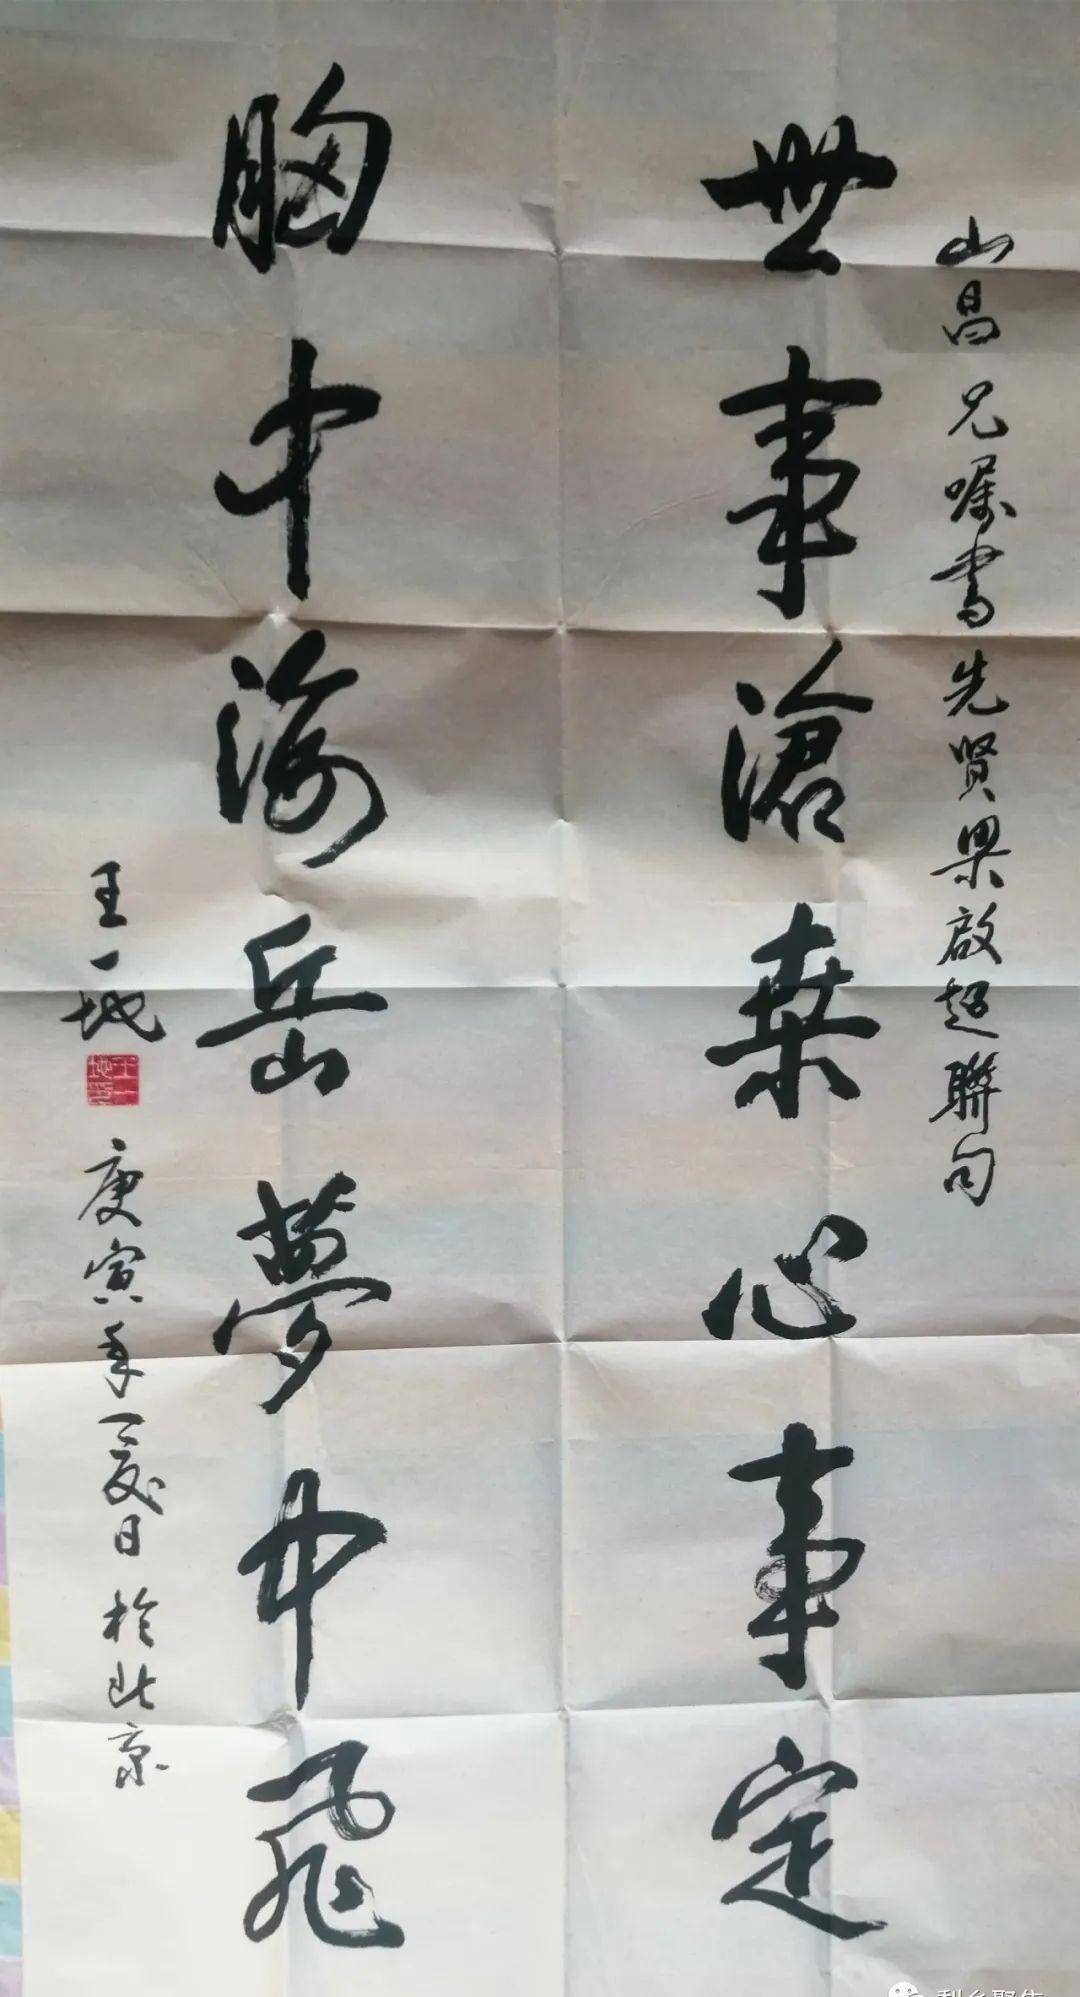 山昌兄嘱书先贤梁启超联句
世事沧桑心事定
胸中海岳梦中飞
王一地
王一地印
庚寅年夏日於北京
梨乡聚焦